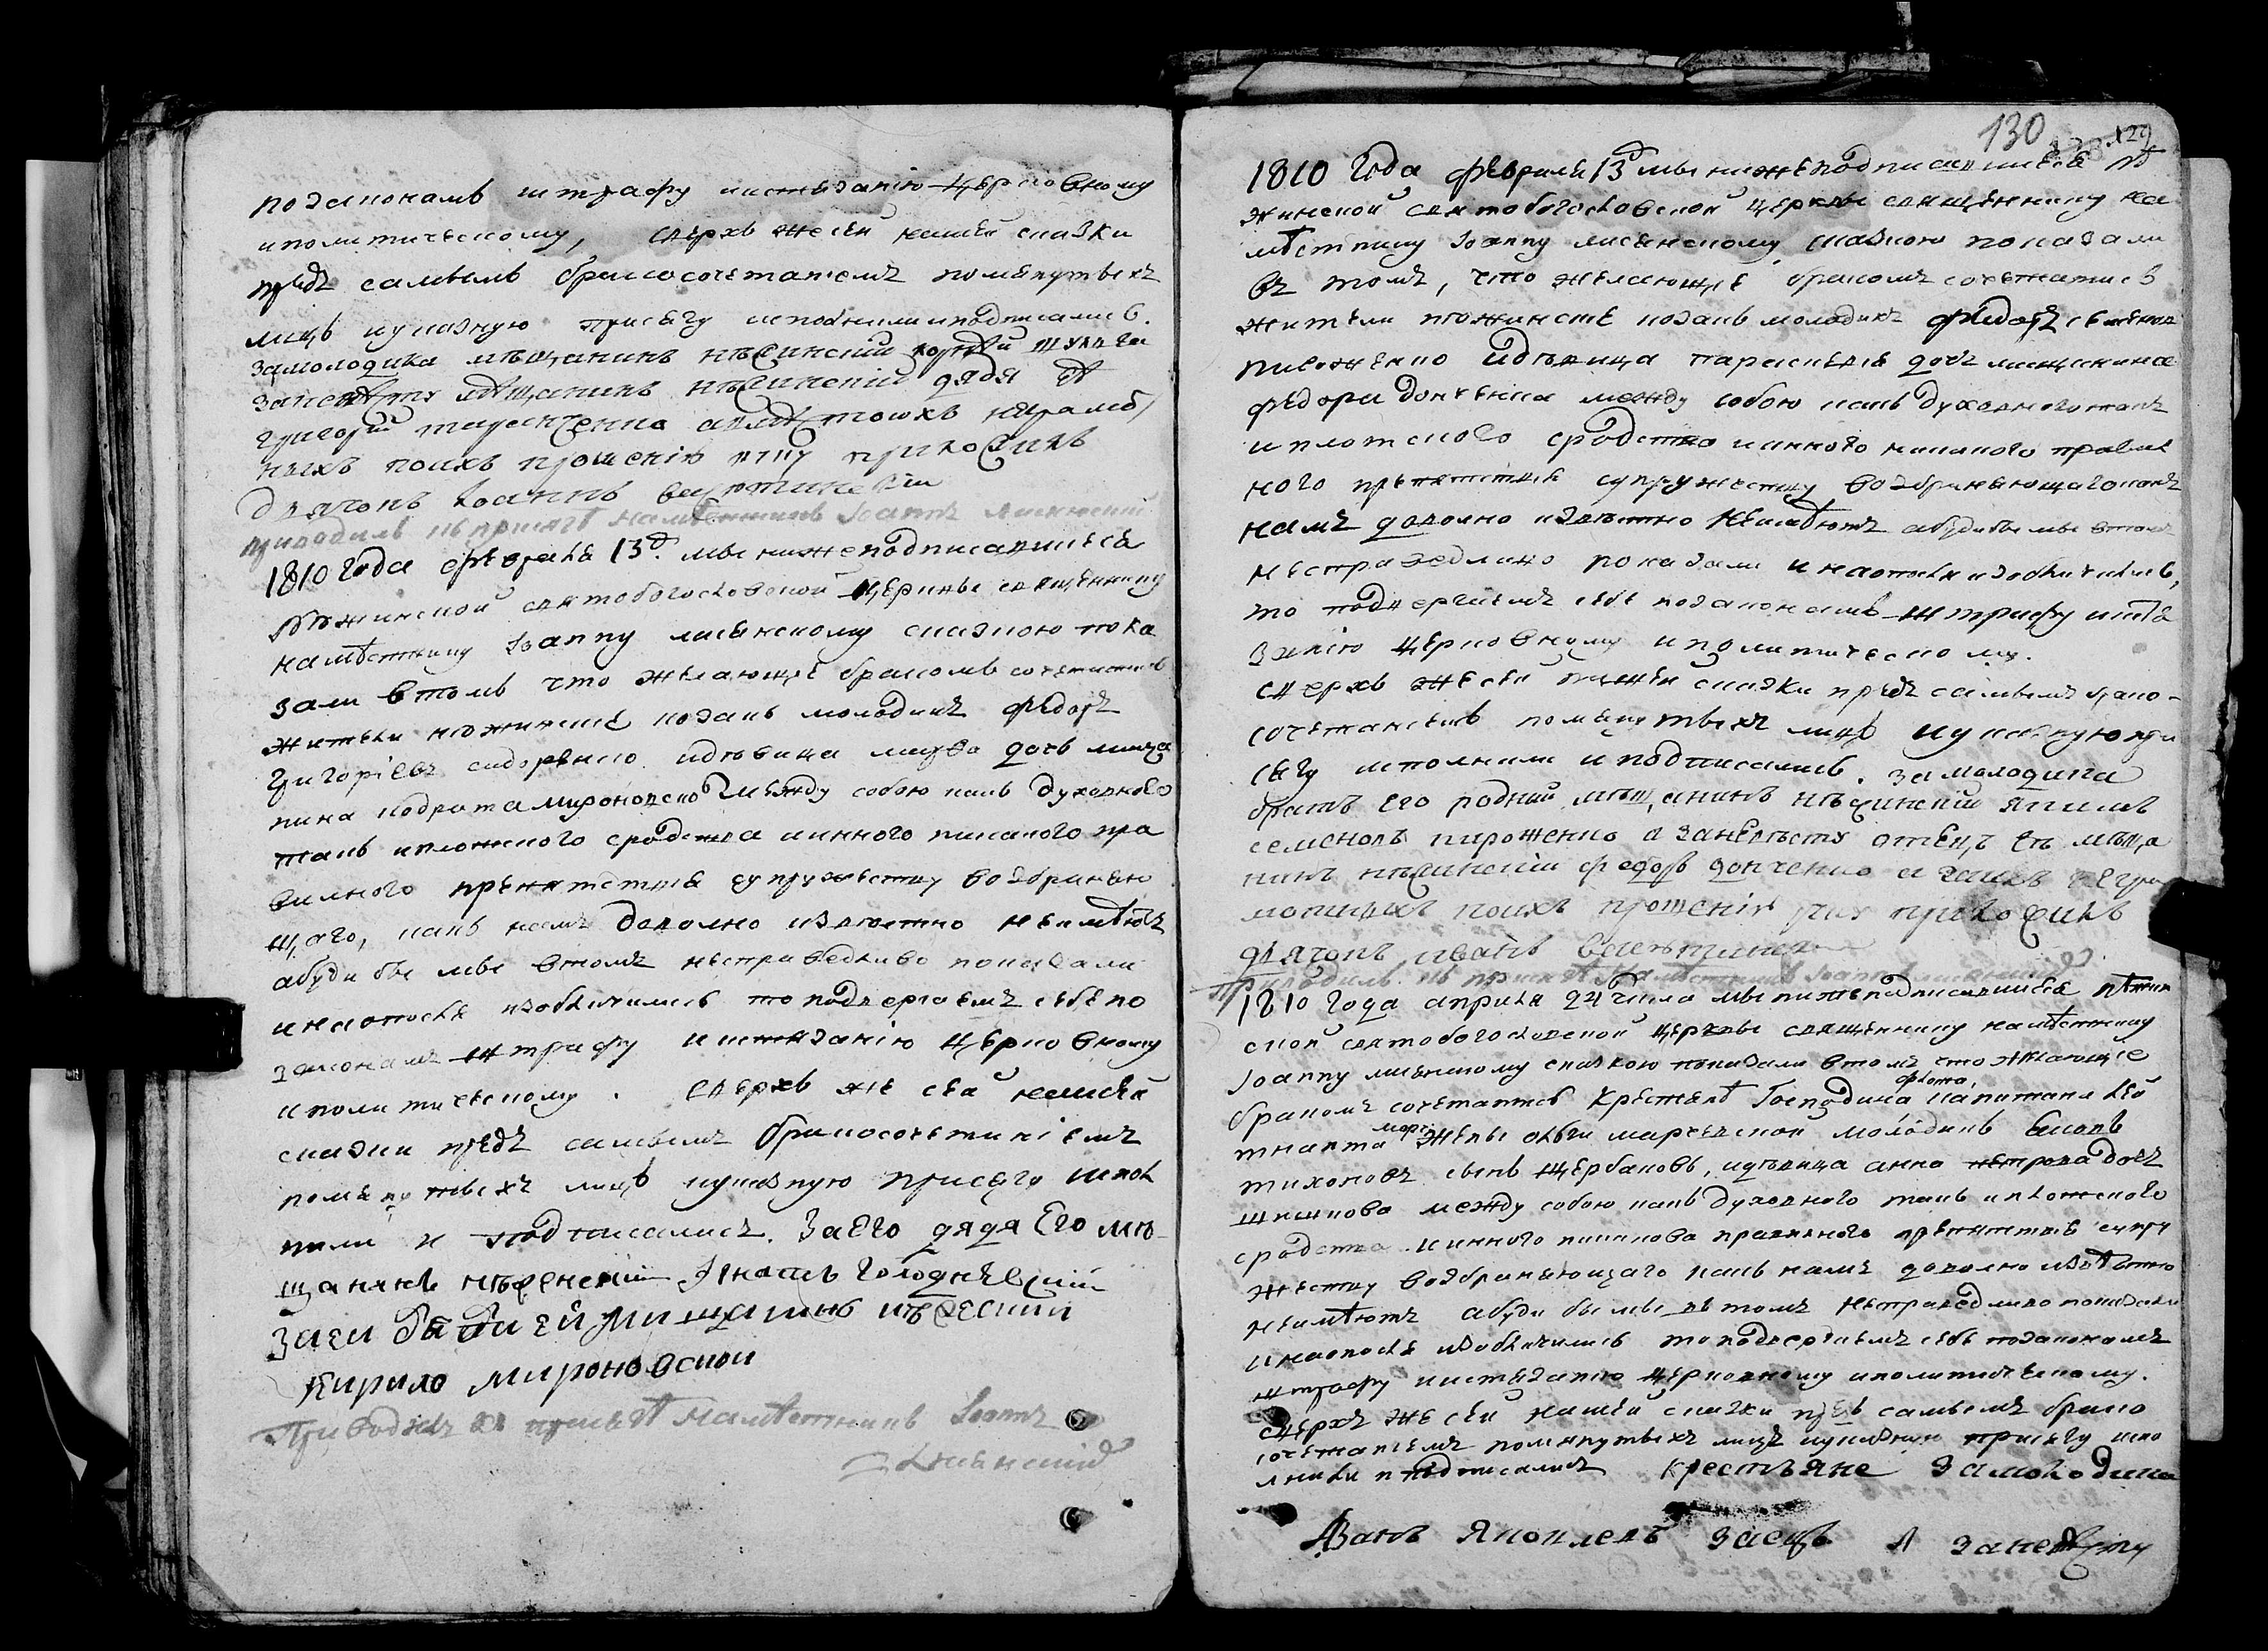 позаконамъ штрафу иистязанїю церковному
иполитическому, сверхъ же сей нашей сказки
предъ самымъ бракосочетанїемъ помянутыхъ
лицъ иуказную присягу исполнили иподписались.
замолодика мѣщанинъ нѣжинскїй
заневѣсту мѣщанинъ нѣжинскїй дядя ей
григорїй тарасченко авмѣсто ихъ неграмот
ныхъ поихъ прошенїю прило‌жилъ
дячокъ Іоаннъ
приводилъ къ присягѣ намѣстникъ Іоаннъ
1810 года февраля 13д. мы нижеподписавшїеся
нѣжинской святобогословской церквы священнику
намѣстнику Іоанну лисянскому сказкою пока
зали втомъ что желающїе бракомъ сочетатись
жители нѣжинскїе козакъ молодикъ федоръ
григорїевъ сидоренко идѣвица дочь мѣща
нина кодрата мироновского между собою какъ духовного
такъ иплотского сродства иинного никакого пра
вилного препятствїя супружеству возбраняю
щаго, какъ намъ доволно извѣстно неимѣютъ
абуди бы мы втомъ несправедливо показали
инаопосля изобличились то подвергаемъ себе по
законамъ штрафу иистязанїю церковному
иполитическому. сверхъ же сей нашей
сказки предъ самымъ бракосочетанїемъ
помянутыхъ лицъ иуказную присягу испол
нили и подписались. Заего дядя Его мѣ
щанинъ нѣженскїй Игнатъ Голодневскїй
Заеи мищанинъ нѣжескїй
Кирило Мироновской
Приводилъ къ присягѣ намѣстникъ Іоаннъ
Лисянскїй
130
129
1810 года февраля 13д мы нижеподписавшїеся нѣ
жинской святобогословской церквы священнику на
мѣстнику Іоанну лисянскому сказкою показали
въ томъ, что желающїе бракомъ сочетатись
жители нѣжинскїе козакъ молодикъ федоръ семеновъ
пироженко идѣвица параскевїя дочь мещанина
федора донченка между собою какъ духовного такъ
иплотского сродства иинного никакого правил
ного препятствїя супружеству возбраняющаго какъ
намъ доволно извѣстно неимѣютъ абудибы мы втомъ
несправедливо показали инаопосля изобличились,
то подвергаемъ себе позаконамъ штрафу иистя
занїю церковному иполитическому.
сверхъ же сей нашей сказки предъ самымъ брако-
сочетанїемъ помянутыхъ лицъ иуказную при
сягу исполнили иподписались. замолодика
братъ его родний мѣщанинъ нѣжинскїй якимъ
семеновъ пироженко а заневѣсту отецъ еъ мѣща
нинъ нѣжинскїй федоръ донченко а не гра
мотныхъ поихъ прошенїю приложилъ
дячокъ иванъ
Приводилъ къ присягѣ намѣстникъ Іоаннъ
1810 года априля 24 числа мы нижеподписавшїеся нѣжин
ской святобогословской церквы священнику намѣстнику
Іоанну лисянскому сказкою показали втомъ что желающїе
флота,
бракомъ сочетатись крестяне Господина капитана лей
тнанта жены олги марковской молодикъ
тихоновъ сынъ Щербаковъ, идѣвица анна петрова дочь
шишкова между собою какъ духовного такъ иплотского
сродства иинного никакова правилного препятствїя супру
жеству возбраняющаго какъ намъ доволно извѣстно
неимѣютъ абуди бы мы въ томъ несправедливо показали
инаопосля изобличились то подвергаемъ себе позаконамъ
штрафу иистязанїю церковному иполитическому.
сверхъ же сей нашей сказки предъ самымъ брако
сочетанїемъ помянутыхъ лицъ иуказную присягу испо
лнили иподписались крестьяне Замолодика
Яковлевъ Заецъ А заневѣсту